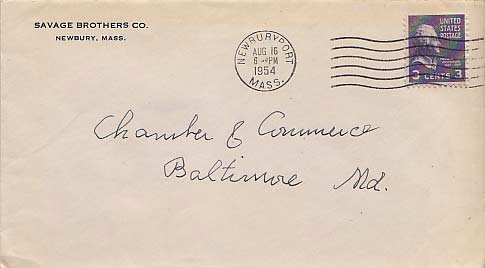 SAVAGE BROTHERS CO.
NEWBURY, MASS.
NEWBURYPORT
AUG 16
6 - PM
1954
MASS.
UNITED
STATES
POSTAGE
3 CENTS 3
Chamber & Commerce
Baltimore Md.